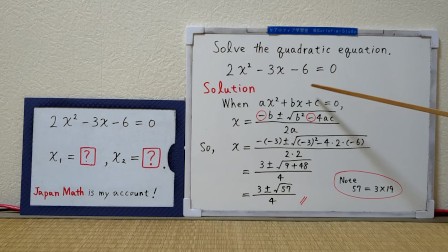 2x² - 3x - 6 = 0
x₁ = ? , x₂ = ? .
Japan Math is my account!
Solve the quadratic equation.
2x² - 3x - 6 = 0
Solution
When ax² + bx + c = 0,
x = (-b ± √(b² - 4ac)) / 2a
So, x = (-(-3) ± √((-3)² - 4·2·(-6))) / 2·2
= (3 ± √(9 + 48)) / 4
= (3 ± √57) / 4
Note
57 = 3×19